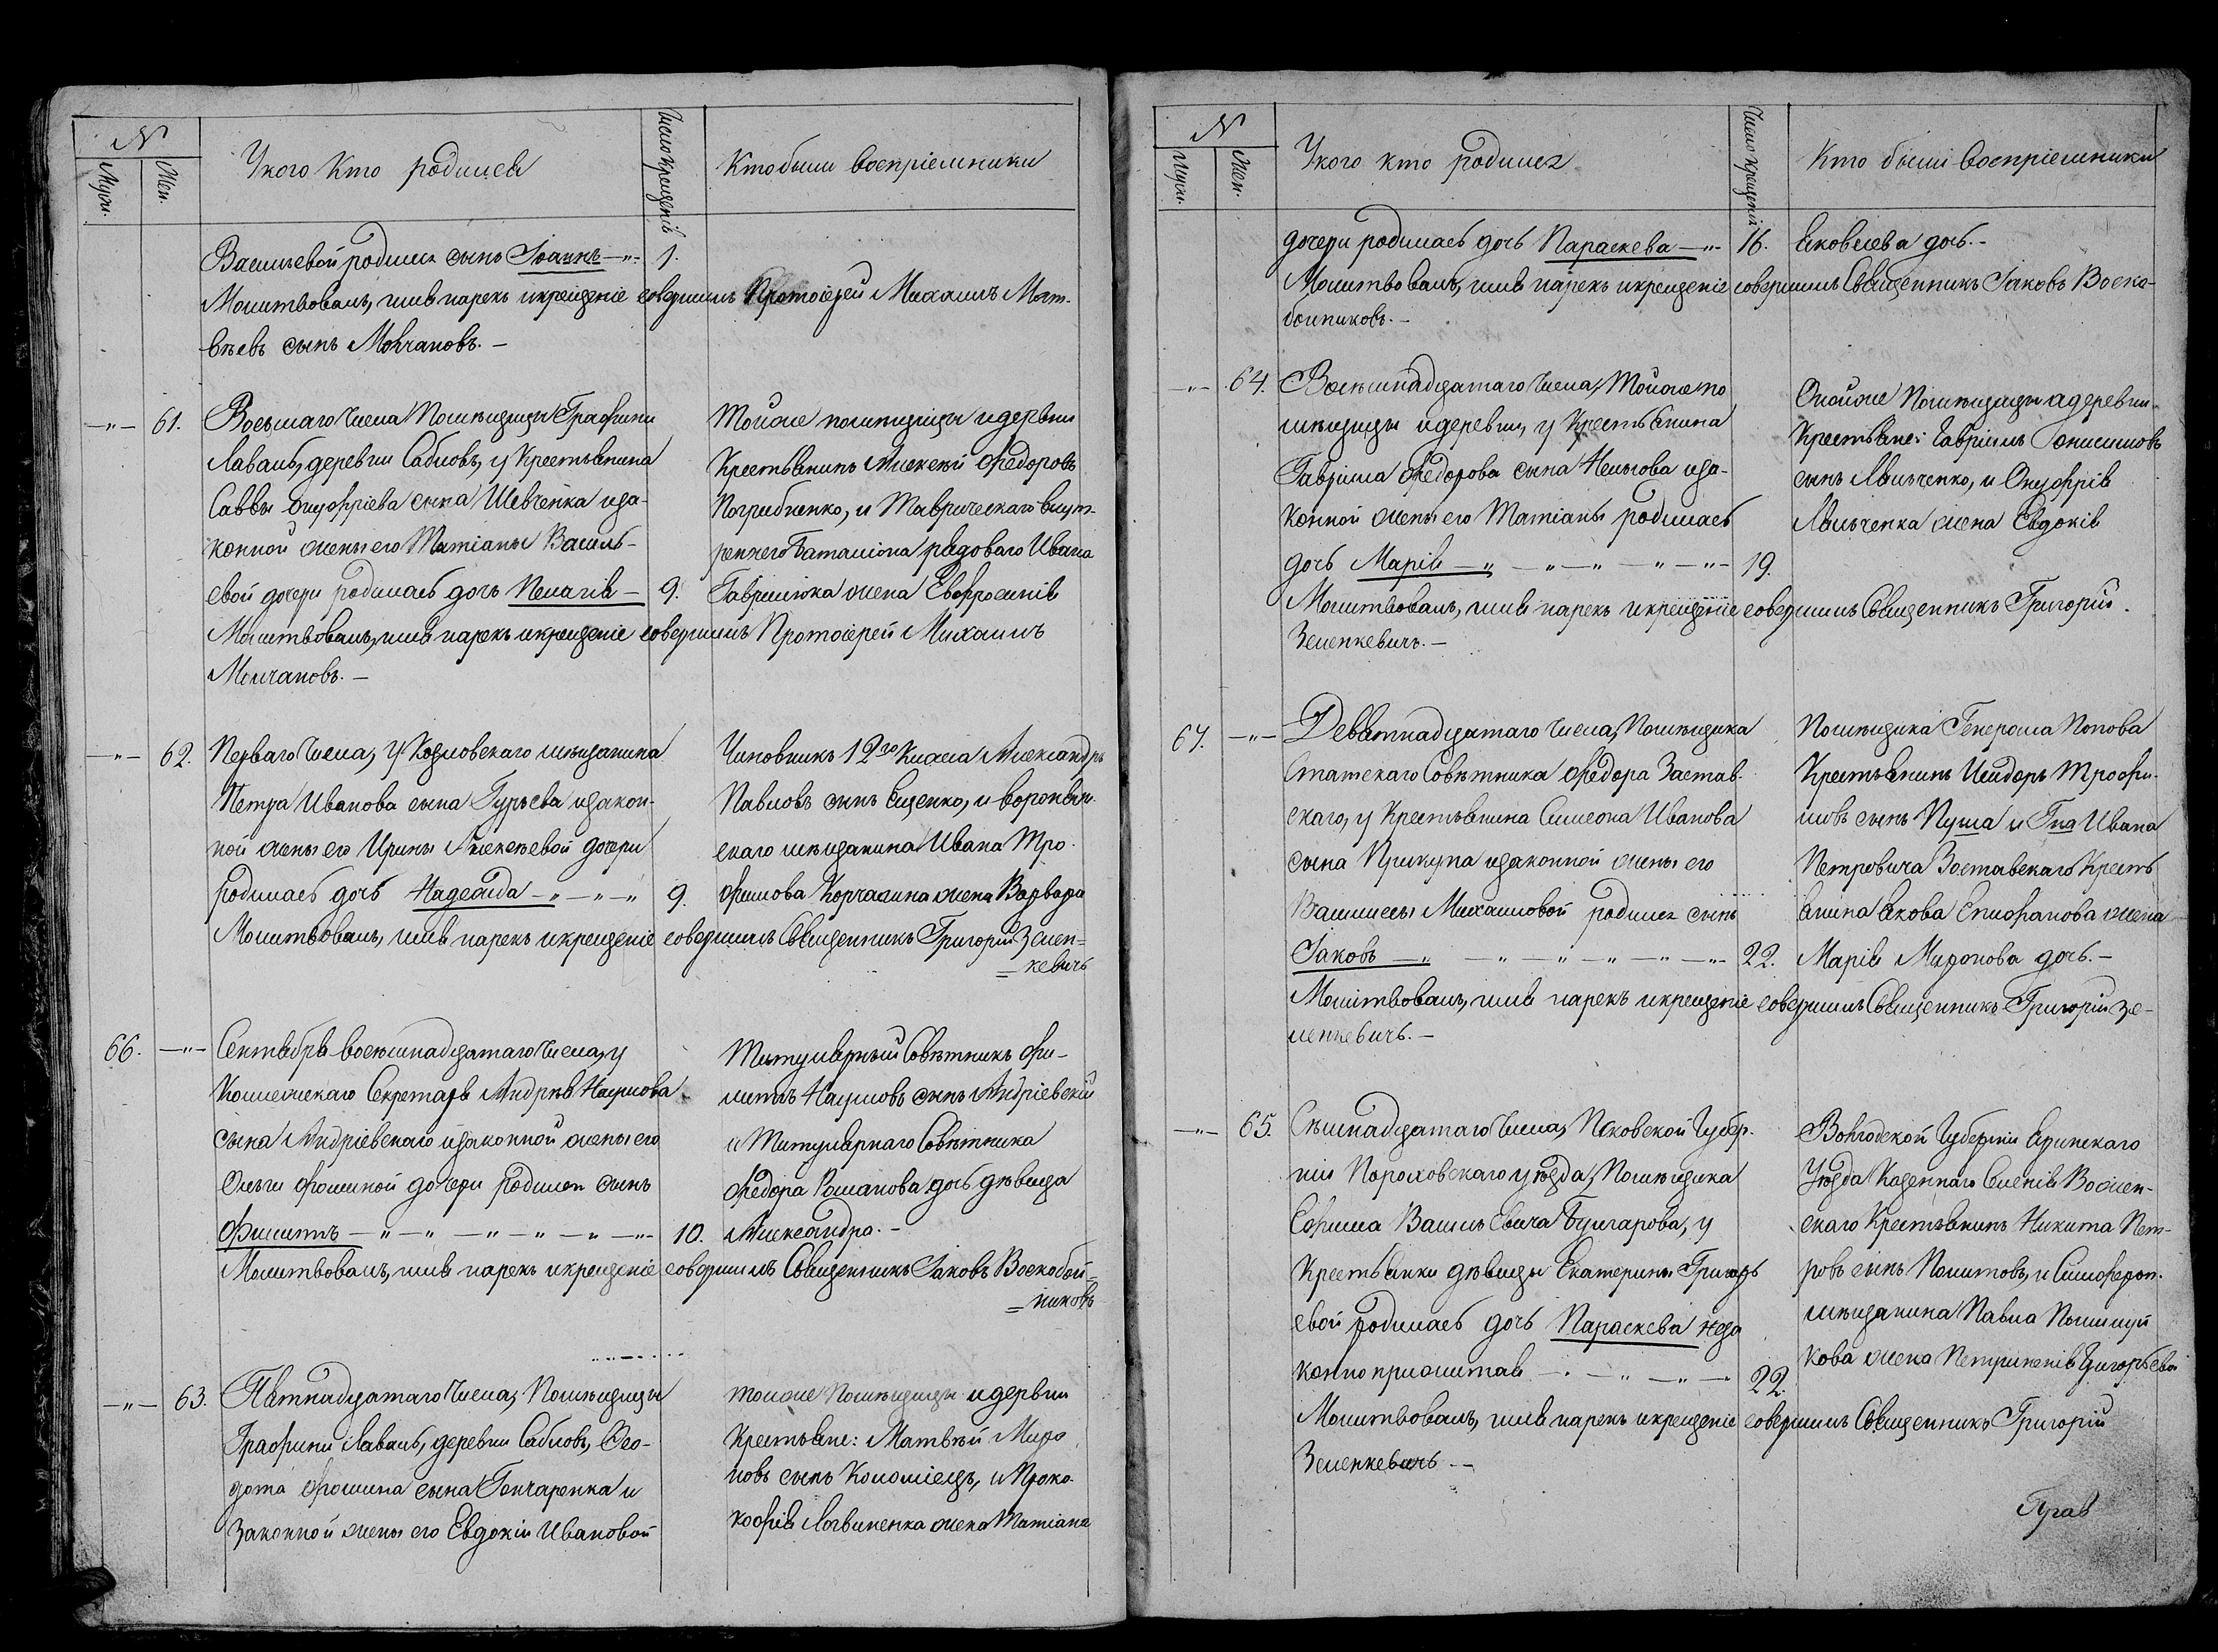 N
Муж.
Жен.
У кого кто родился
Число крещенія
Кто были воспріемники
Васильевой родился сынъ Іоаннъ — 1.
Молитвовалъ, имя нарекъ и крещеніе совершилъ Протоіерей Михаилъ Мат-
вѣевъ сынъ Молчановъ. —
— „ — 61. Восьмаго числа, Помѣщицы Графини
Лаваль, деревни Сабловъ, у Крестьянина
Саввы Онуфріева сына Шевченка и за-
конной жены его Татіаны Василь-
евой дочери родилась дочь Пелагія — 9.
Тойже помѣщицы и деревни
Крестьянинъ Алексій Федоровъ
Погрибненко, и Таврическаго внут-
ренняго баталіона рядоваго Ивана
Гаврилюка жена Евфросинія
Молитвовалъ, имя нарекъ и крещеніе совершилъ Протоіерей Михаилъ
Молчановъ. —
— „ — 62. Перваго числа, у Козловскаго мѣщанина
Петра Иванова сына Гурьева и закон-
ной жены его Ирины Алексѣевой дочери
родилась дочь Надежда — „ — „ — „ 9.
Чиновникъ 12го Класса Александръ
Павловъ сынъ Ещенко, и воронѣж-
скаго мѣщанина Ивана Тро-
фимова Корчагина жена Варвара
Молитвовалъ, имя нарекъ и крещеніе совершилъ Священникъ Григорій Зелен-
= кевичь
66. — „ — Сентября восемнадцатаго числа, у
Коллежскаго Секретаря Андрея Наумова
сына Андріевскаго и законной жены его
Ольги Фоминой дочери родился сынъ
Филиппъ — „ — „ — „ — „ — „ — 10.
Титулярный Совѣтникъ Фи-
липпъ Наумовъ сынъ Андріевскій
и Титулярнаго Совѣтника
Федора Романова дочь дѣвица
Александра. —
Молитвовалъ, имя нарекъ и крещеніе совершилъ Священникъ Іаковъ Воскобой-
= никовъ
— „ — 63. Пятнадцатаго числа, Помѣщицы
Графини Лаваль, деревни Сабловъ, Ѳео-
дота Фомина сына Гончаренка и
законной жены его Евдокіи Ивановой
тоиже Помѣщицы и дервни
Крестьяне: Матвѣй Миро
новъ сынъ Коломіецъ, и Проко-
кофія Логвиненка жена Татіана
N
Муж.
Жен.
У кого кто родился
Число крещенія
Кто были воспріемники
дочери родилась дочь Параскева — „ — 16. Яковлева дочь. —
Молитвовалъ, имя нарекъ и крещеніе совершилъ Священникъ Іаковъ Воско-
бойниковъ. —
— „ — 64. Восемнадцатаго числа, Тойже по
мѣщицы и деревни, у Крестьянина
Гавріила Федорова сына и за-
конной жены его Татіаны родилась
дочь Марія — „ — „ — „ — „ — 19.
Оной же Помѣщицы и деревни
Крестьяне: Гавріилъ Онисимовъ
сынъ Ляльченко, и Онуфрія
Ляльченка жена Евдокія
Молитвовалъ, имя нарекъ и крещеніе совершилъ Священникъ Григорій
Зеленкевичъ. —
67. — „ — Девятнадцатаго числа, Помѣщика
Статскаго Совѣтника Федора Застав-
скаго, у Крестьянина Симеона Иванова
сына Прикупа и законной жены его
Василисы Михаиловой родился сынъ
Іаковъ — „ — „ — „ — „ — „ — 22.
Помѣщика Генерала Попова
Крестьянинъ Исидоръ Трофи-
мовъ сынъ Пуша и Гна Ивана
Петровича Заставскаго Кресть
янина Якова Епифанова жена
Марія Миронова дочь. —
Молитвовалъ, имя нарекъ и крещеніе совершилъ Священникъ Григорій Зе-
ленкевичь. —
— „ — 65. Сѣмнадцатаго числа, Псковской Губер-
ніи Порховскаго уѣзда, Помѣщика
Васильевича Булгарова, у
Крестьянки дѣвицы Екатерины Григорь
евой родилась дочь Параскева неза
конно прижитая — „ — „ — „ — 22.
Вологодской Губерніи
Уѣзда Казеннаго Селенія
скаго Крестьянинъ Никита Пет-
ровъ сынъ Политовъ, и Симфероп.
мѣщанина Павла
кова жена Григорьева
Молитвовалъ, имя нарекъ и крещеніе совершилъ Священникъ Григорій
Зеленкевичь. —